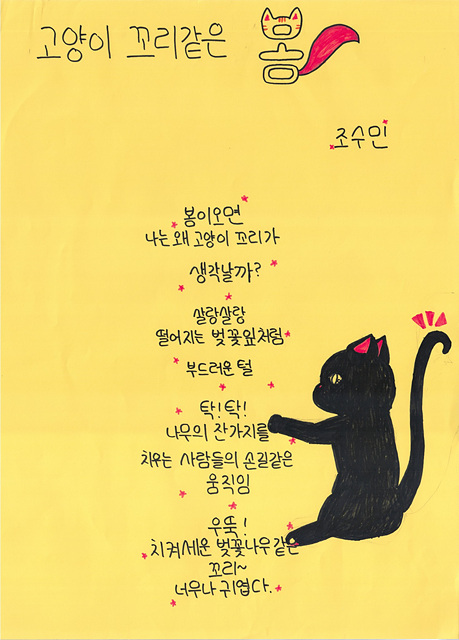 고양이 꼬리같은 봄
조수민
봄이오면
나는 왜 고양이 꼬리가
생각날까?
살랑살랑
떨어지는 벚꽃잎처럼
부드러운 털
탁! 탁!
나무의 잔가지를
치우는 사람들의 손길같은
움직임
우뚝!
치켜세운 벚꽃나무같은
꼬리~
너무나 귀엽다.